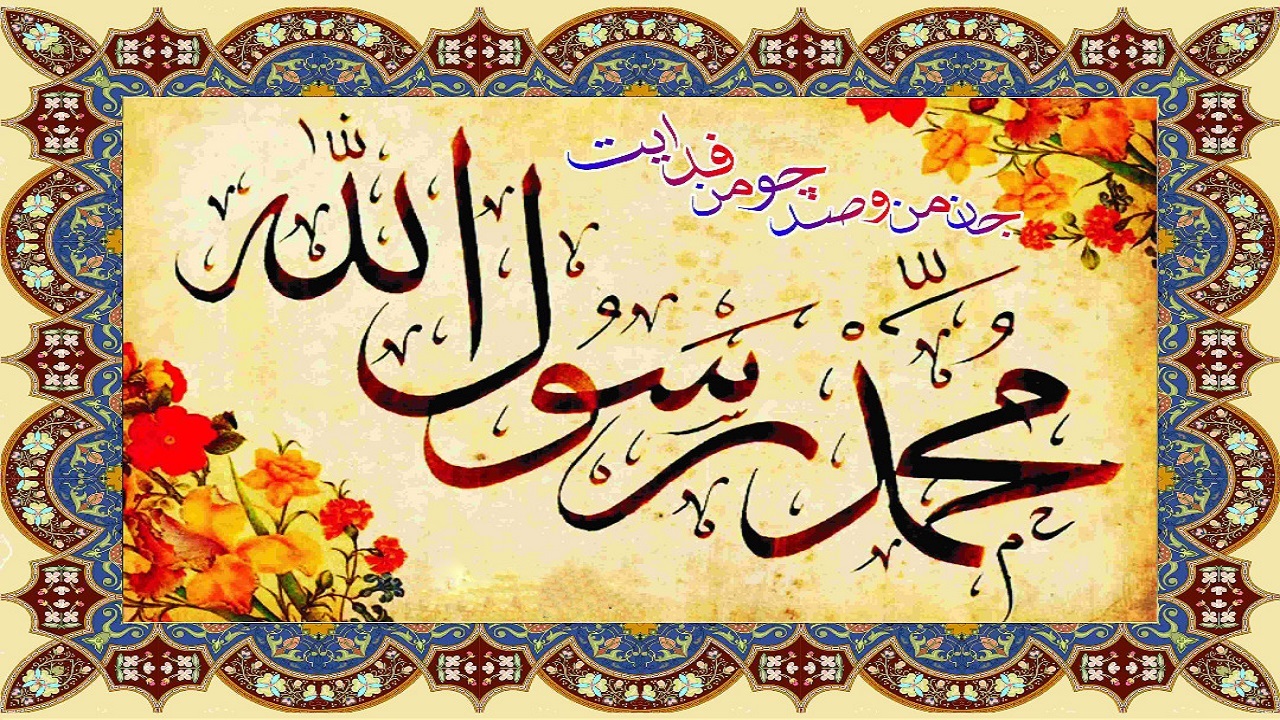 جان من و صد چو من فدایت
محمد رسول الله